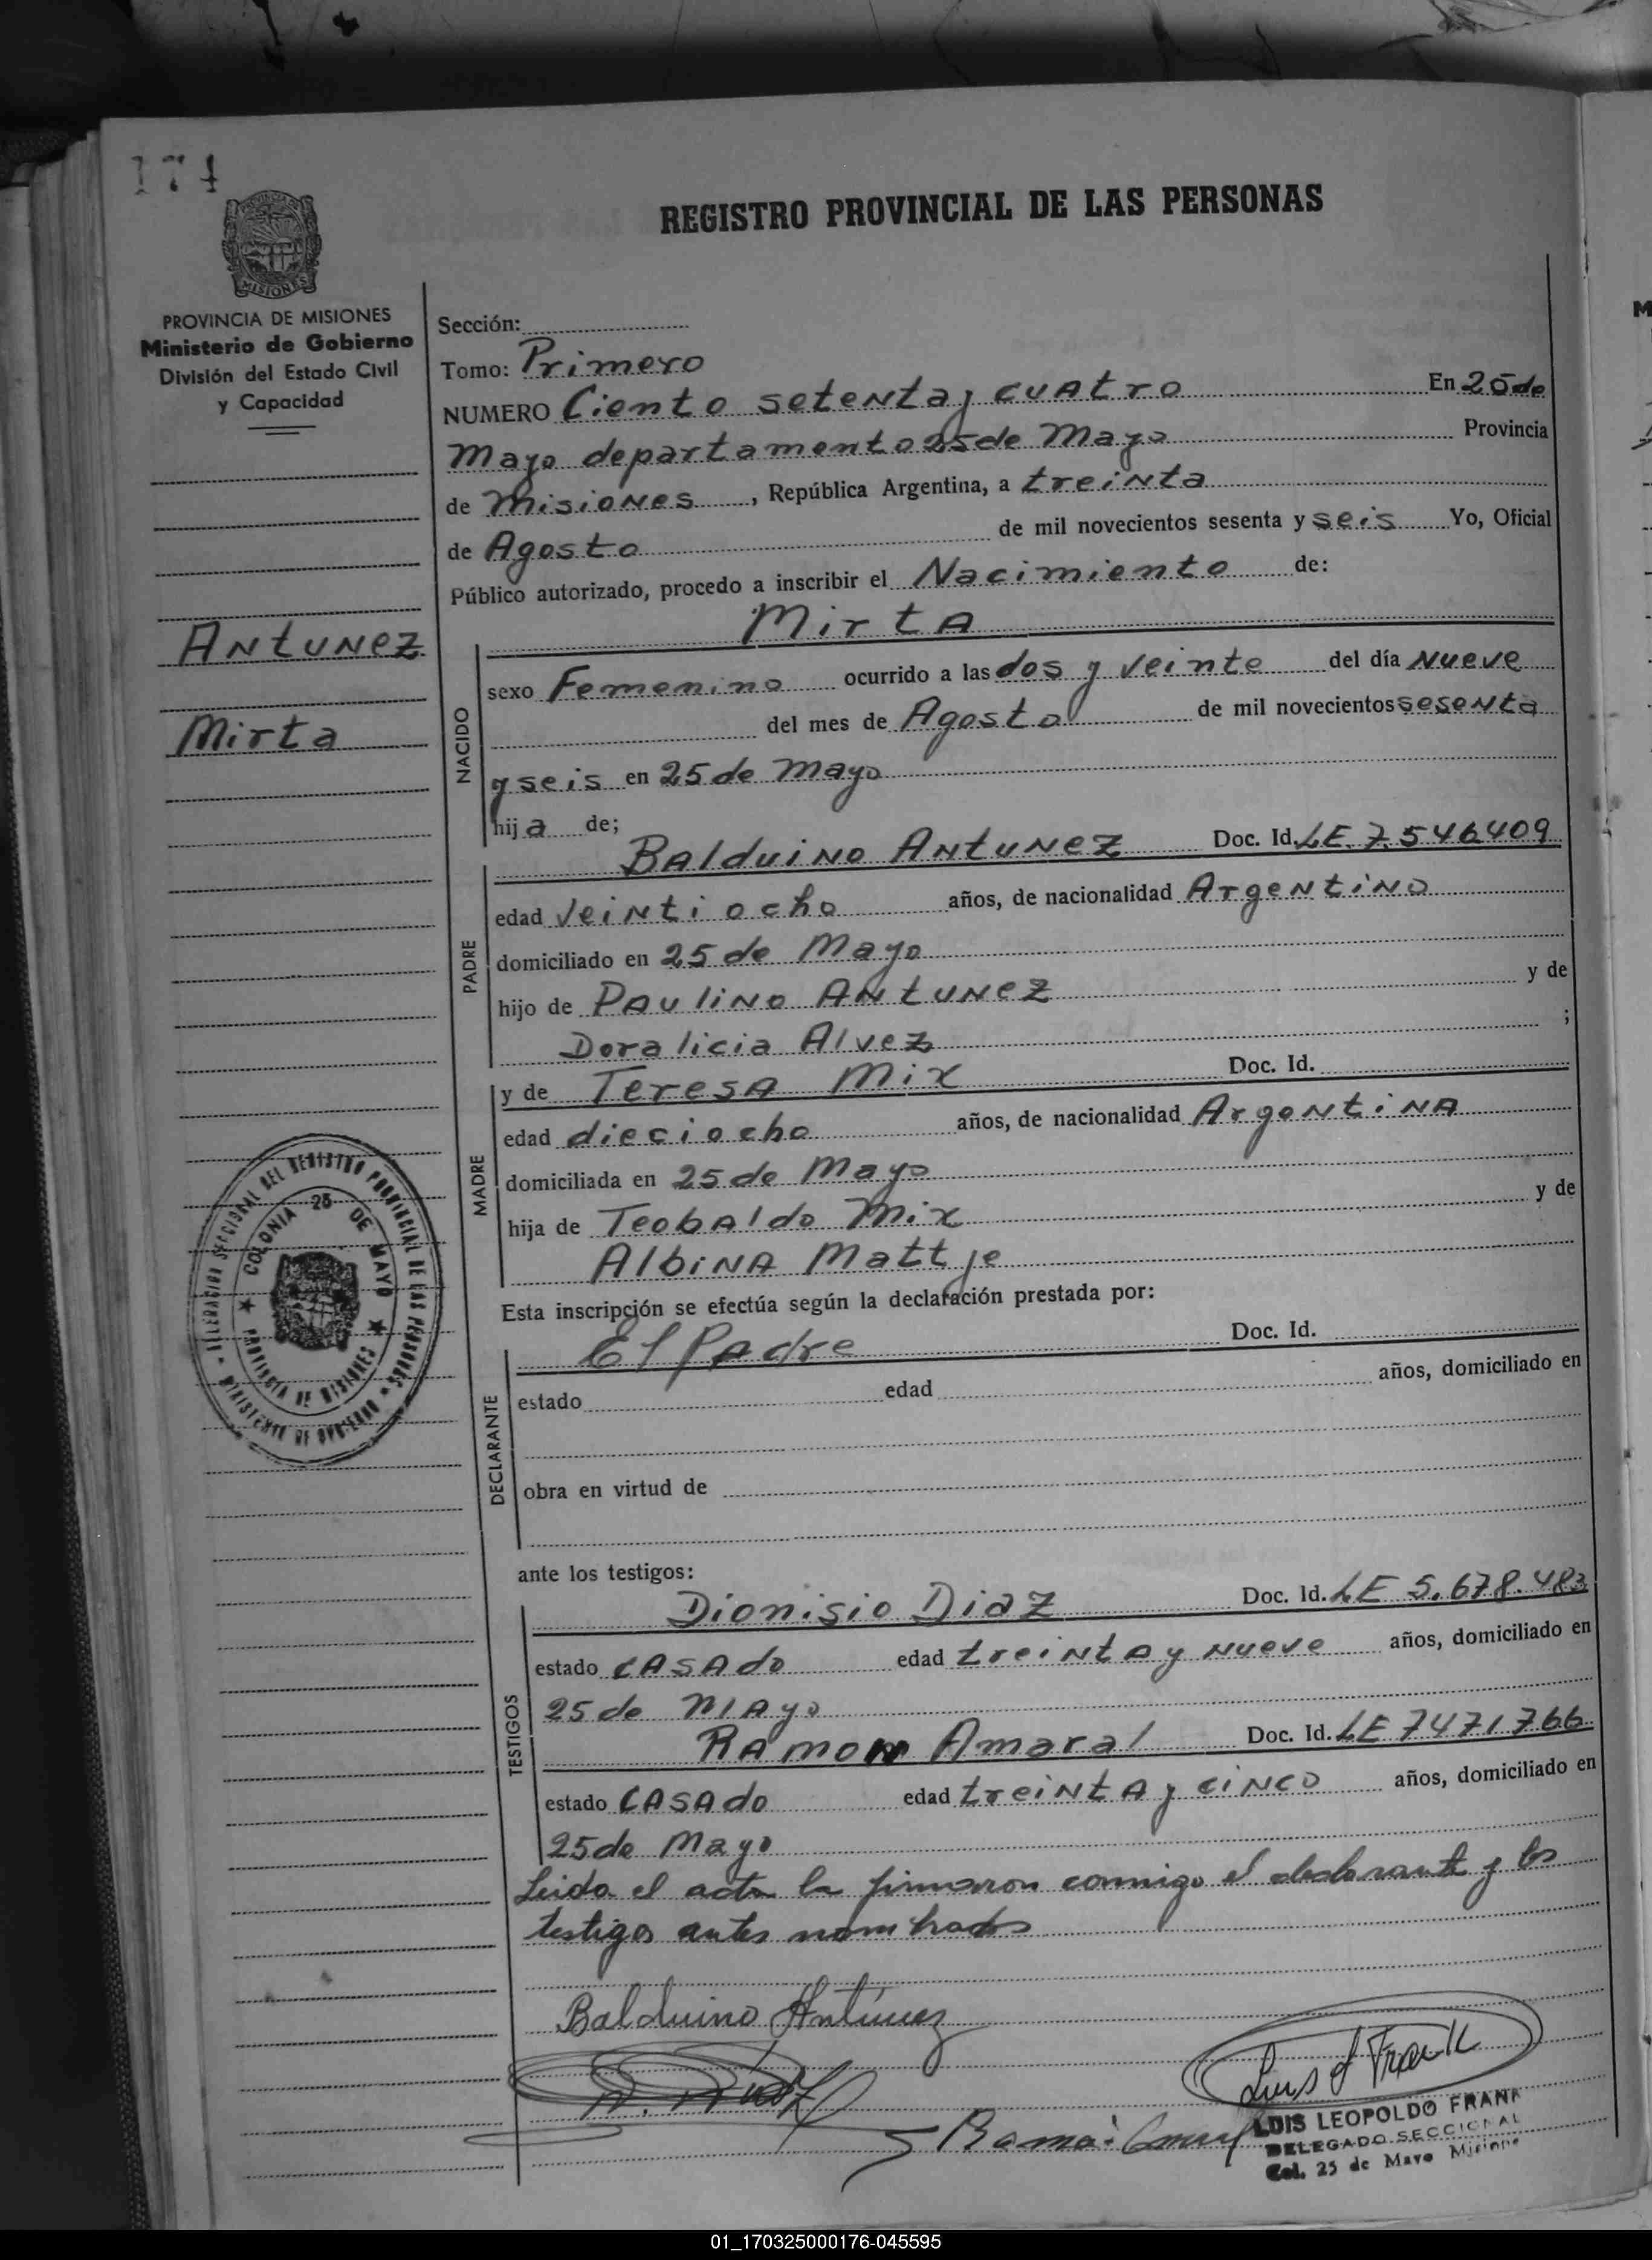 174
REGISTRO PROVINCIAL DE LAS PERSONAS
PROVINCIA DE MISIONES
MISIONES
PROVINCIA DE MISIONES
Ministerio de Gobierno
División del Estado Civil
y Capacidad
Antunez
Mirta
DELEGACION SECCIONAL DEL REGISTRO PROVINCIAL DE LAS PERSONAS
MINISTERIO DE GOBIERNO
COLONIA 25 DE MAYO
PROVINCIA DE MISIONES
Sección:
Tomo: Primero
NUMERO Ciento setenta y cuatro En 25 de
Mayo departamento 25 de Mayo Provincia
de Misiones, República Argentina, a treinta
de Agosto de mil novecientos sesenta y seis Yo, Oficial
Público autorizado, procedo a inscribir el Nacimiento de:
Mirta
NACIDO
sexo Femenino ocurrido a las dos y veinte del día Nueve
del mes de Agosto de mil novecientos sesenta
y seis en 25 de Mayo
hija de;
PADRE
Balduino Antunez Doc. Id. LE. 7.546409
edad veintiocho años, de nacionalidad Argentino
domiciliado en 25 de Mayo
hijo de Paulino Antunez y de
Doralicia Alvez ;
MADRE
y de Teresa Mix Doc. Id.
edad dieciocho años, de nacionalidad Argentina
domiciliada en 25 de Mayo
hija de Teobaldo Mix y de
Albina Mattje
Esta inscripción se efectúa según la declaración prestada por:
DECLARANTE
El Padre Doc. Id.
estado edad años, domiciliado en
obra en virtud de
ante los testigos:
TESTIGOS
Dionisio Diaz Doc. Id. LE 5.678.483
estado casado edad treinta y nueve años, domiciliado en
25 de Mayo
Ramon Amaral Doc. Id. LE 7471766
estado casado edad treinta y cinco años, domiciliado en
25 de Mayo
Leida el acta la firmaron conmigo el declarante y los
testigos antes nombrados
Balduino Antúnez
Luis L Frank
LUIS LEOPOLDO FRANK
DELEGADO SECCIONAL
Col. 25 de Mayo Misiones
01_170325000176-045595